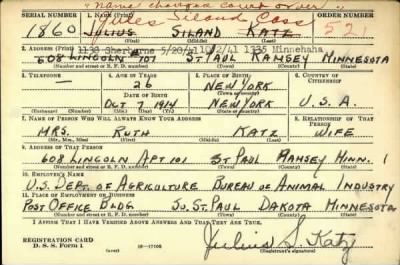 "Name changed Court order"
SERIAL NUMBER 1. NAME (Print) ORDER NUMBER
Jules Siland Cass
1860 JULIUS SILAND KATZ 521
(First) (Middle) (Last)
1138 Sherburne 5/20/41 10/2/41 1335 Minnehaha
2. ADDRESS (Print)
608 LINCOLN #101 ST PAUL RAMSEY MINNESOTA
(Number and street or R. F. D. number) (Town) (County) (State)
3. TELEPHONE 4. AGE IN YEARS 5. PLACE OF BIRTH 6. COUNTRY OF CITIZENSHIP
26 NEW YORK
(Town or county)
DATE OF BIRTH
OCT 7 1914 NEW YORK U.S.A.
(Exchange) (Number) (Mo.) (Day) (Yr.) (State or country)
7. NAME OF PERSON WHO WILL ALWAYS KNOW YOUR ADDRESS 8. RELATIONSHIP OF THAT PERSON
MRS. RUTH KATZ WIFE
(Mr., Mrs., Miss) (First) (Middle) (Last)
9. ADDRESS OF THAT PERSON
608 LINCOLN APT 101 ST PAUL RAMSEY MINN.
(Number and street or R. F. D. number) (Town) (County) (State)
10. EMPLOYER'S NAME
U.S. DEPT. OF AGRICULTURE BUREAU OF ANIMAL INDUSTRY
11. PLACE OF EMPLOYMENT OR BUSINESS
POST OFFICE BLDG. SO. ST. PAUL DAKOTA MINNESOTA
(Number and street or R. F. D. number) (Town) (County) (State)
I AFFIRM THAT I HAVE VERIFIED ABOVE ANSWERS AND THAT THEY ARE TRUE.
REGISTRATION CARD
D. S. S. Form 1 (over) 16—17105 Julius S. Katz
(Registrant's signature)